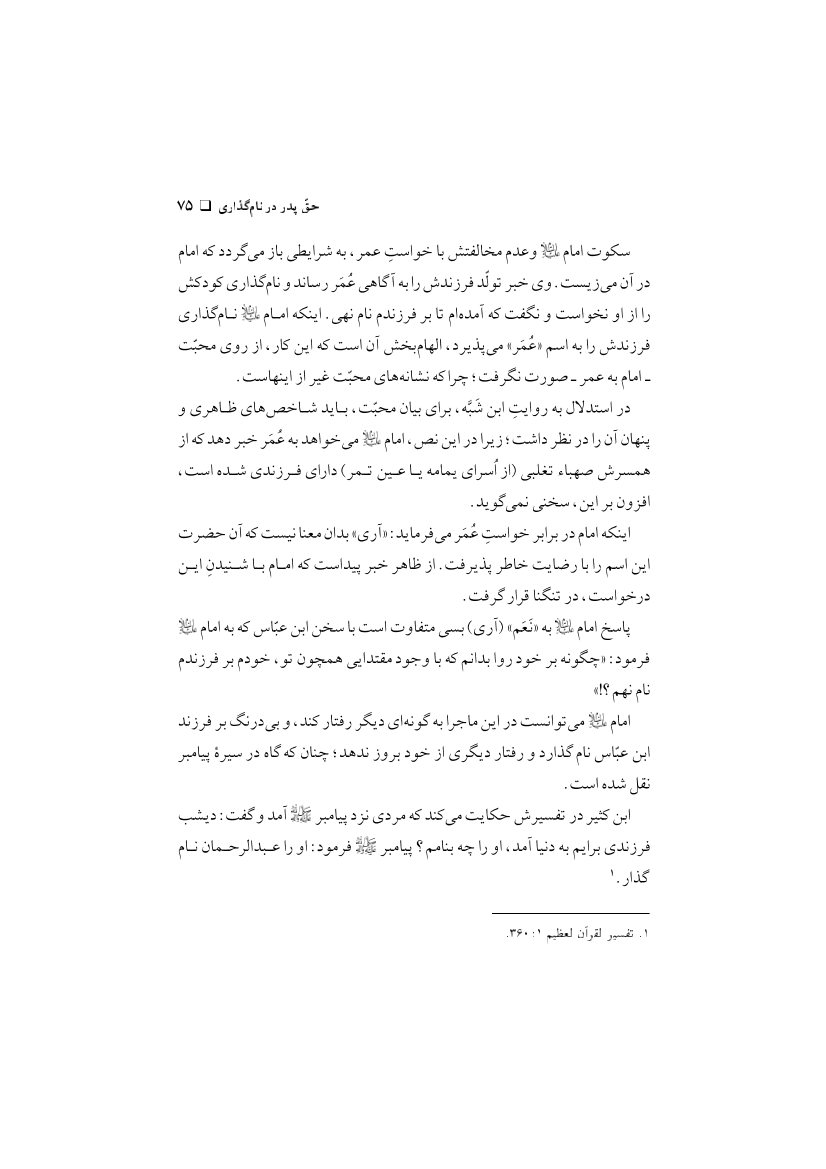 حقّ پدر در نام‌گذاری ❏ ۷۵
سکوت امام علیه‌السلام وعدم مخالفتش با خواستِ عمر، به شرایطی باز می‌گردد که امام
در آن می‌زیست. وی خبر تولّد فرزندش را به آگاهی عُمَر رساند و نام‌گذاری کودکش
را از او نخواست و نگفت که آمده‌ام تا بر فرزندم نام نهی. اینکه امـام علیه‌السلام نـام‌گذاری
فرزندش را به اسم «عُمَر» می‌پذیرد، الهام‌بخش آن است که این کار، از روی محبّت
ـ امام به عمر ـ صورت نگرفت؛ چراکه نشانه‌های محبّت غیر از اینهاست.
در استدلال به روایتِ ابن شَبَّه، برای بیان محبّت، بـاید شـاخص‌های ظـاهری و
پنهان آن را در نظر داشت؛ زیرا در این نص، امام علیه‌السلام می‌خواهد به عُمَر خبر دهد که از
همسرش صهباء تغلبی (از اُسرای یمامه یـا عـین تـمر) دارای فـرزندی شـده است،
افزون بر این، سخنی نمی‌گوید.
اینکه امام در برابر خواستِ عُمَر می‌فرماید: «آری» بدان معنا نیست که آن حضرت
این اسم را با رضایت خاطر پذیرفت. از ظاهر خبر پیداست که امـام بـا شـنیدنِ ایـن
درخواست، در تنگنا قرار گرفت.
پاسخ امام علیه‌السلام به «نَعَم» (آری) بسی متفاوت است با سخن ابن عبّاس که به امام علیه‌السلام
فرمود: «چگونه بر خود روا بدانم که با وجود مقتدایی همچون تو، خودم بر فرزندم
نام نهم؟!»
امام علیه‌السلام می‌توانست در این ماجرا به گونه‌ای دیگر رفتار کند، و بی‌درنگ بر فرزند
ابن عبّاس نام گذارد و رفتار دیگری از خود بروز ندهد؛ چنان که گاه در سیرهٔ پیامبر
نقل شده است.
ابن کثیر در تفسیرش حکایت می‌کند که مردی نزد پیامبر ﷺ آمد و گفت: دیشب
فرزندی برایم به دنیا آمد، او را چه بنامم؟ پیامبر ﷺ فرمود: او را عـبدالرحـمان نـام
گذار.۱
۱. تفسیر لقرآن لعظیم ۱: ۳۶۰.